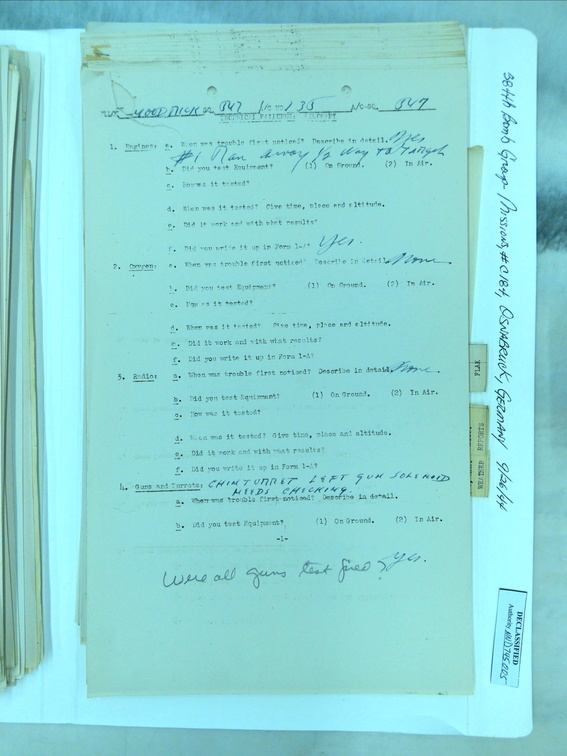 PILOT GOODRICK A/C 047 No. 135 No. SQ. 047
TECHNICAL FAILURES: AIRCRAFT
1. Engines: a. When was trouble first noticed? Describe in detail. Yes
#1 Ran away 1/2 way to Target
b. Did you test Equipment? (1) On Ground. (2) In Air.
c. How was it tested?
d. When was it tested? Give time, place and altitude.
e. Did it work and with what results?
f. Did you write it up in Form 1-A? Yes.
2. Oxygen: a. When was trouble first noticed? Describe in detail. None
b. Did you test Equipment? (1) On Ground. (2) In Air.
c. How as it tested?
d. When was it tested? Give time, place and altitude.
e. Did it work and with what results?
f. Did you write it up in Form 1-A?
3. Radio: a. When was trouble first noticed? Describe in detail. None
b. Did you test Equipment? (1) On Ground. (2) In Air.
c. How was it tested?
d. When was it tested? Give time, place and altitude.
e. Did it work and with what results?
f. Did you write it up in Form 1-A?
4. Guns and Turrets: CHIN TURRET LEFT GUN SOLENOID
NEEDS CHECKING
a. When was trouble first noticed? Describe in detail.
b. Did you test Equipment? (1) On Ground. (2) In Air.
-1-
Were all guns test fired? Yes.
384th Bomb Group, Mission # C184, OSNABRUCK, GERMANY 9/26/44
FLAK
REPORTS
DECLASSIFIED
Authority NND 745005